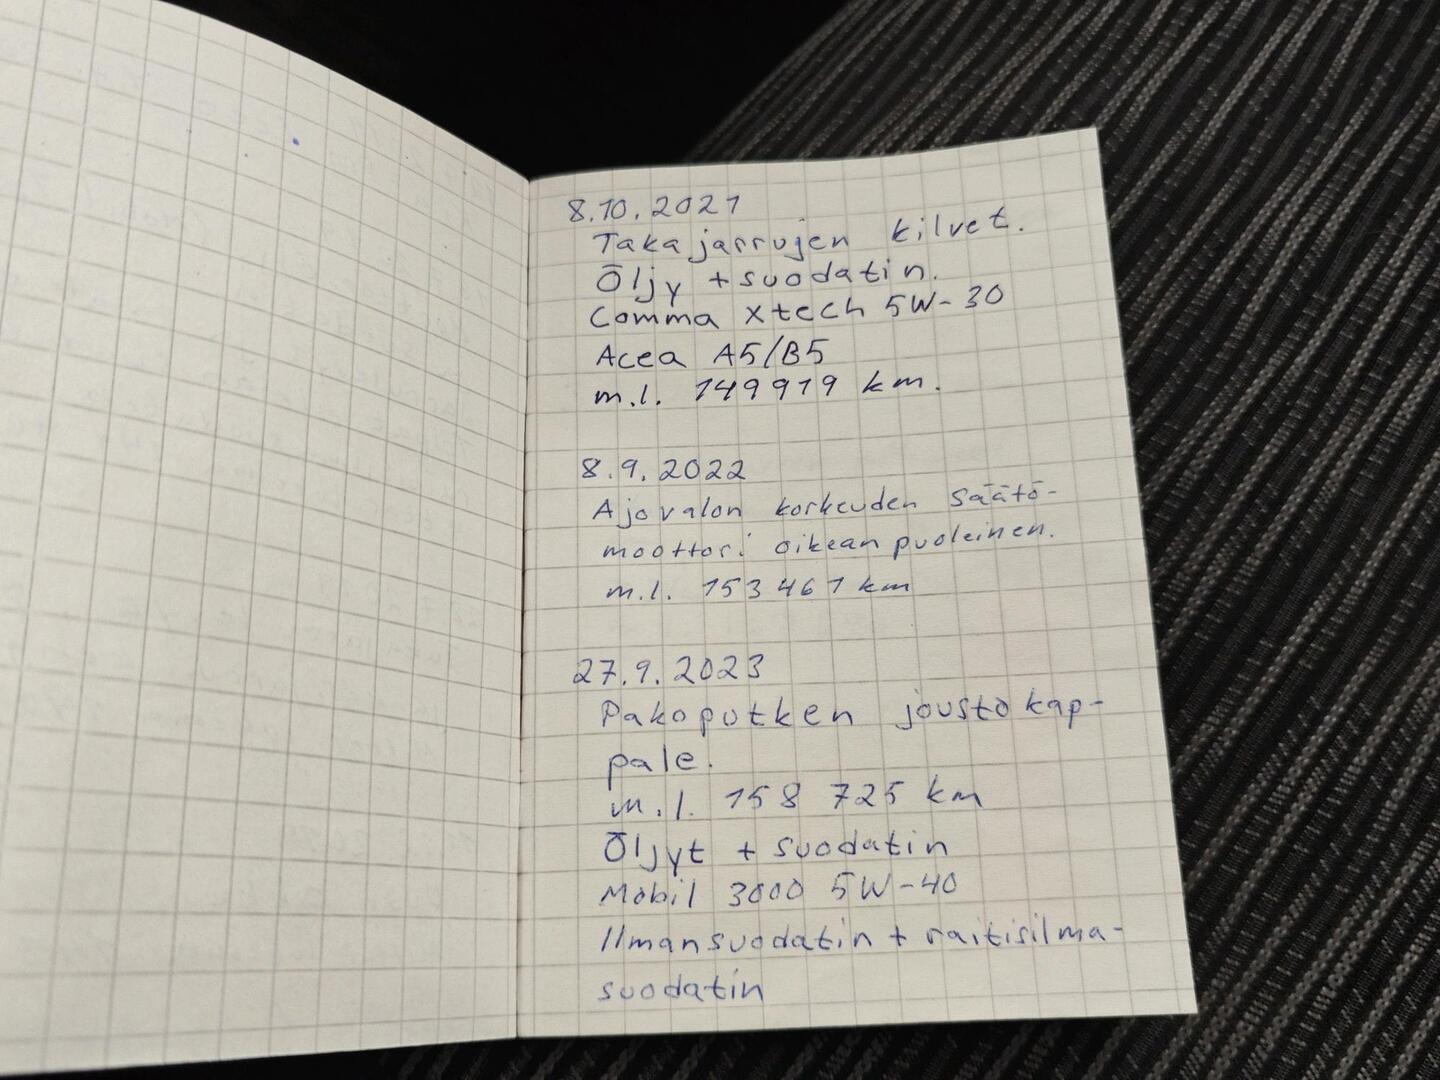 8.10.2021
Takajarrujen kilvet.
Öljy + suodatin.
Comma xtech 5W-30
Acea A5/B5
m.l. 149919 km.
8.9.2022
Ajovalon korkeuden säätö-
moottori oikeanpuoleinen.
m.l. 153461 km
27.9.2023
Pakoputken joustokap-
pale.
m.l. 158 725 km
Öljyt + suodatin
Mobil 3000 5W-40
Ilmansuodatin + raitisilma-
suodatin